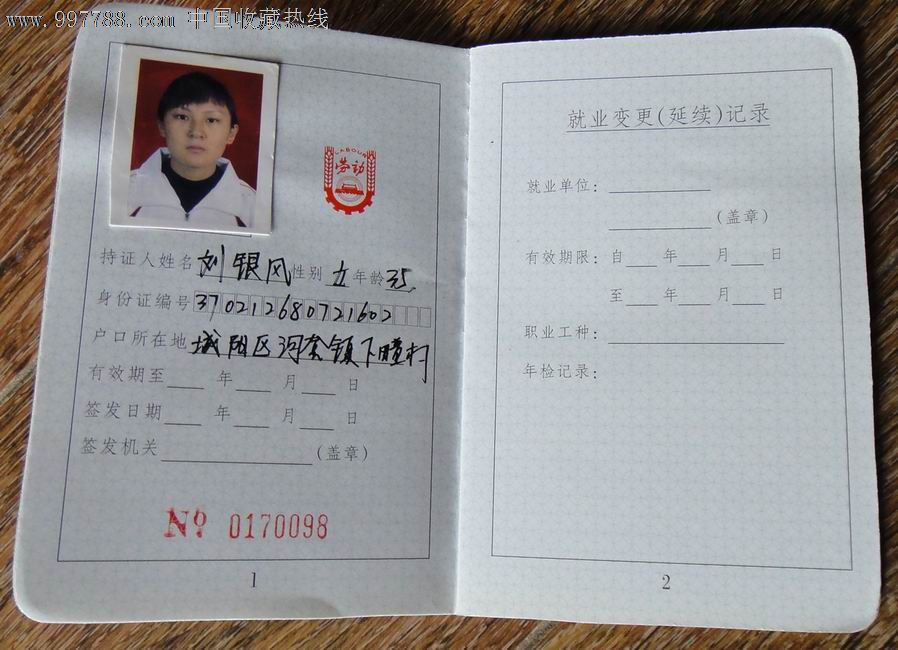 www.997788.com 中国收藏热线
LABOUR
劳动
持证人姓名 刘银风 性别 女 年龄 35
身份证编号 370212680721602
户口所在地 城阳区河套镇下疃村
有效期至 年 月 日
签发日期 年 月 日
签发机关 (盖章)
No 0170098
1
就业变更(延续)记录
就业单位:
(盖章)
有效期限: 自 年 月 日
至 年 月 日
职业工种:
年检记录:
2